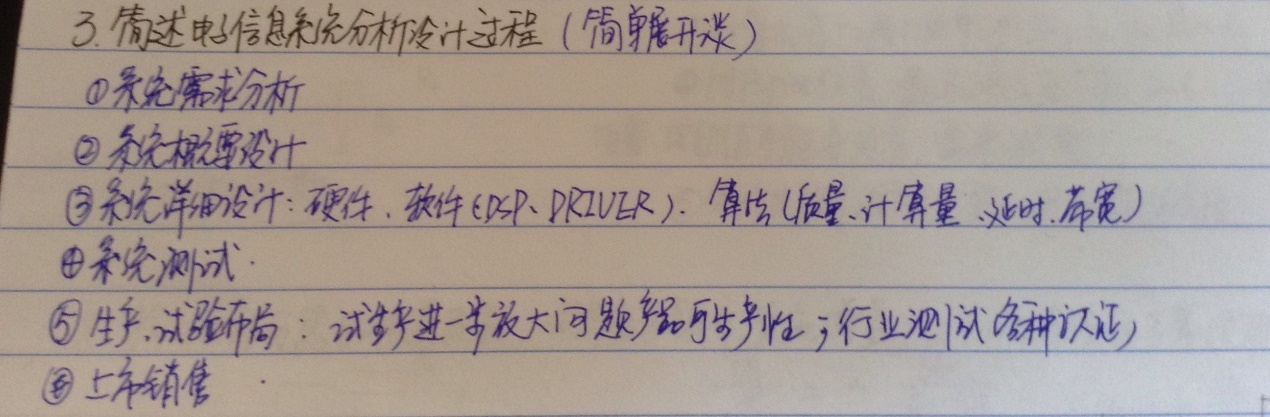 3. 简述电子信息系统分析设计过程（简单展开谈）
①系统需求分析
②系统概要设计
③系统详细设计：硬件、软件（DSP、DRIVER）、算法（质量、计算量、延时、带宽）
④系统测试.
⑤生产、试验布局：试生产进一步放大问题产品可生产性；行业测试各种认证，
⑥上市销售.